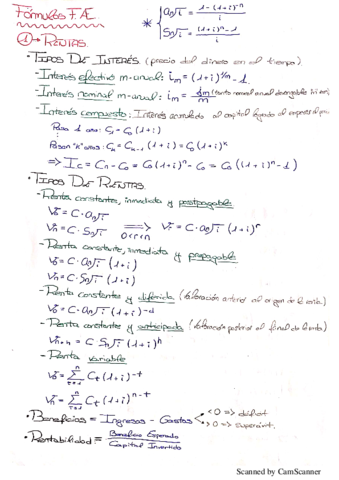 Fórmulas F.AE
* { an¬i = 1-(1+i)^-n / i
Sn¬i = (1+i)^n - 1 / i
① → RENTAS.
· TIPOS DE INTERÉS (precio del dinero en el tiempo).
- Interés efectivo m-anual: im = (1+i)^1/m - 1
- Interés nominal m-anual: im = Jm/m (tanto nominal
- Interés compuesto: Interés acumulado al capital
Para 1 año: C1 = C0 (1+i)
Para "n" años: Cn = Cn-1 (1+i) = C0 (1+i)^n
=> Ic = Cn - C0 = C0 (1+i)^n - C0 = C0 ((1+i)^n - 1)
· TIPOS DE RENTAS.
- Renta constantes, inmediata y postpagable
V0 = C · an¬i
Vn = C · Sn¬i => 0<r<n Vr = C · an¬i (1+i)^r
- Renta constante, inmediata y prepagable
V0 = C · an¬i (1+i)
Vn = C · Sn¬i (1+i)
- Renta constantes y diferida (Valoración anterior al origen de la renta)
V0 = C · an¬i (1+i)^-d
- Renta constantes y anticipada (Valoración posterior al final de la renta)
Vn+h = C Sn¬i (1+i)^h
- Renta variable
V0 = Σ Ct (1+i)^-t
Vn = Σ Ct (1+i)^n-t
· Beneficios = Ingresos - Gastos < 0 => déficit
> 0 => superávit.
· Rentabilidad = Beneficio Esperado / Capital Invertido
Scanned by CamScanner